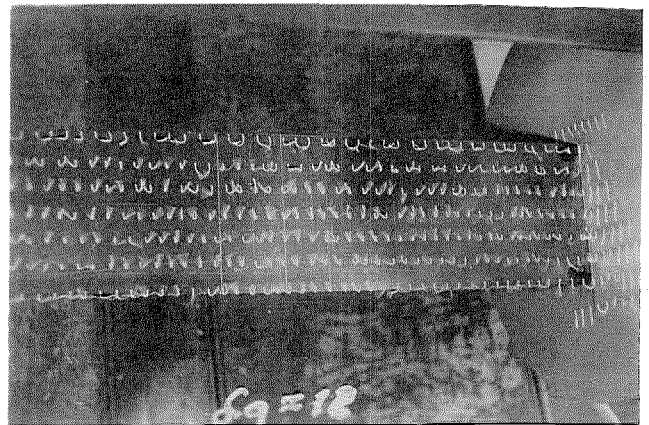 δa = 12